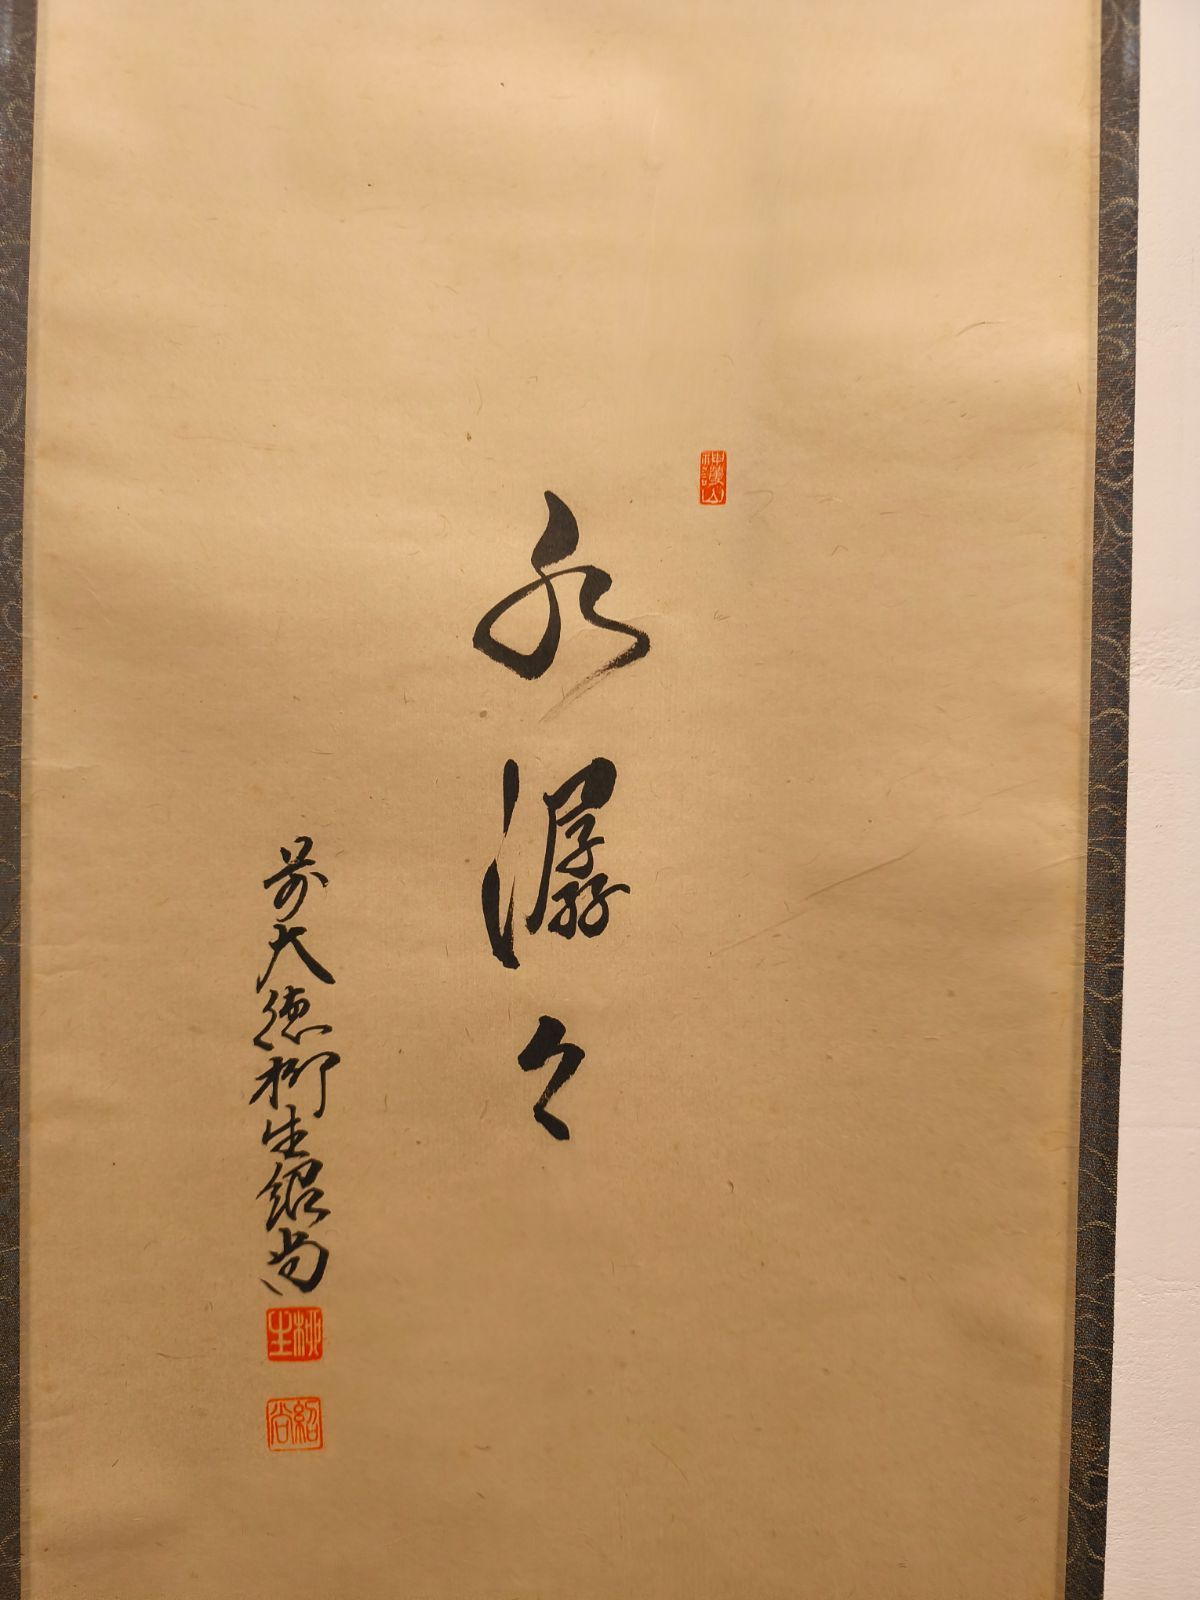 水潺々
前大徳柳生紹尚
柳生
紹尚